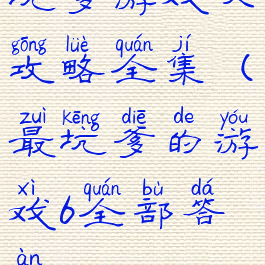 gōng lüè quán jí
攻略全集（
zuì kēng diē de yóu
最坑爹的游
xì quán bù dá
戏6全部答
àn